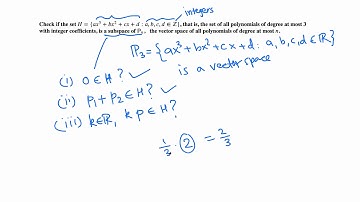 integers
Check if the set H = {ax³ + bx² + cx + d : a, b, c, d ∈ Z}, that is, the set of all polynomials of degree at most 3
with integer coefficients, is a subspace of P₃, the vector space of all polynomials of degree at most n.
P₃ = {ax³ + bx² + cx + d : a, b, c, d ∈ ℝ}
is a vector space
(i) 0 ∈ H ? ✓
(ii) p₁ + p₂ ∈ H ? ✓
(iii) k ∈ ℝ, k p ∈ H ?
1/3 · 2 = 2/3